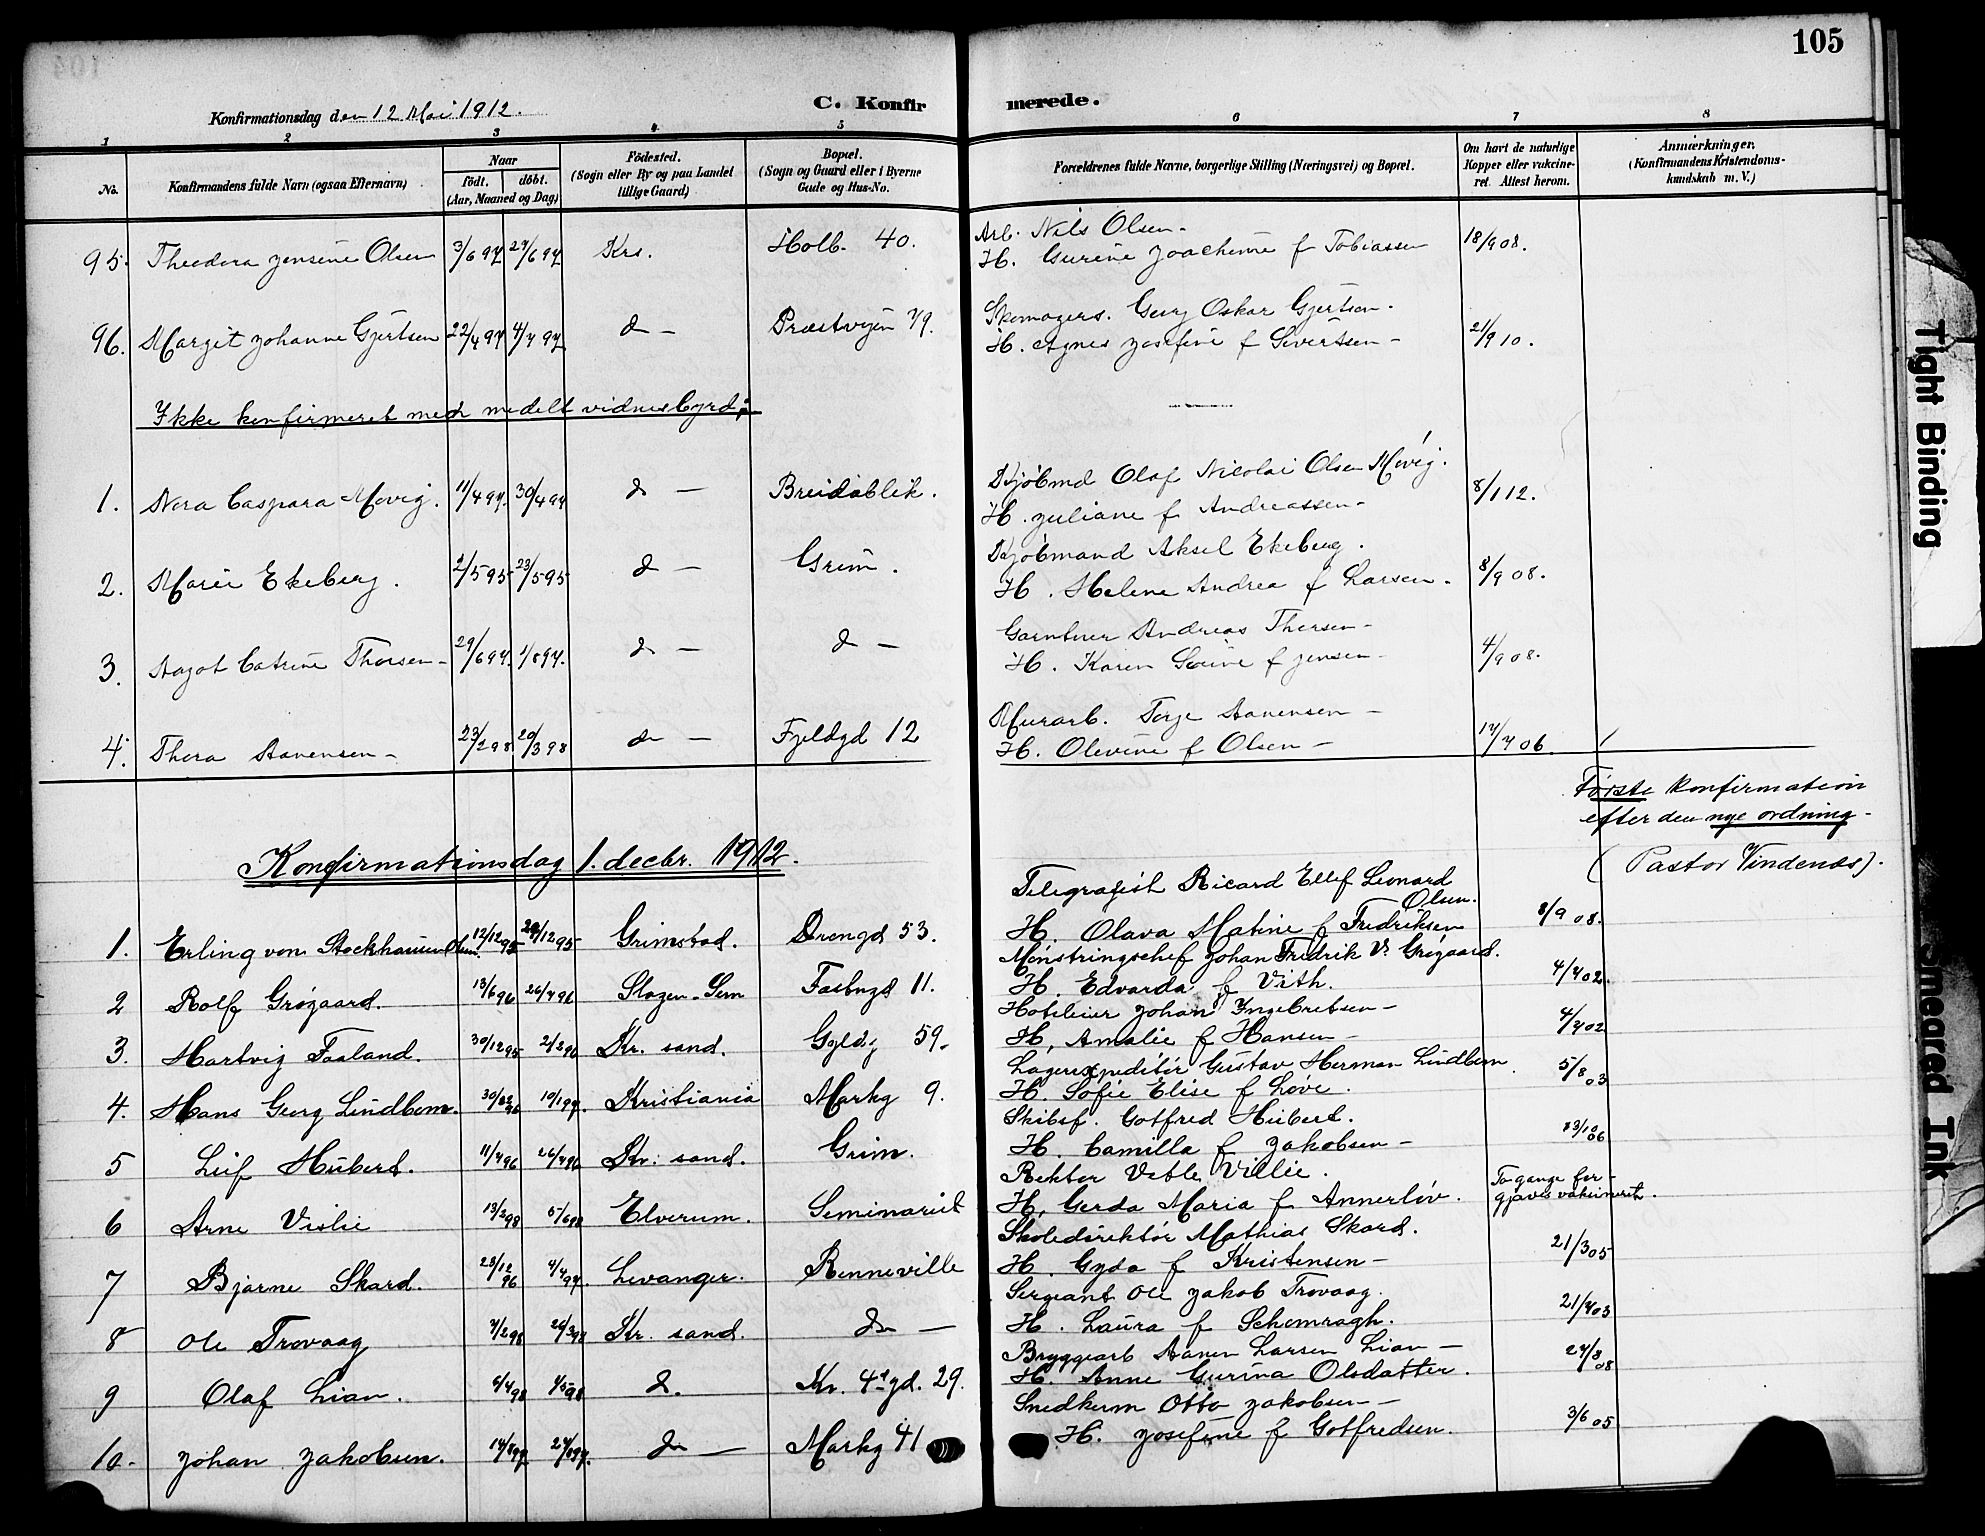 105
Konfirmationsdag den 12 Mai 1912.
C. Konfirmerede.
1 2 3 4 5 6 7 8
No.
Konfirmandens fulde Navn (ogsaa Efternavn)
Naar
födt. döbt.
(Aar, Maaned og Dag)
Födested.
(Sogn eller By og paa Landet
tillige Gaard)
Bopæl.
(Sogn og Gaard eller i Byerne
Gade og Hus-No.
Forældrenes fulde Navne, borgerlige Stilling (Næringsvei) og Bopæl.
Om havt de naturlige
Kopper eller vakcine-
ret. Attest herom.
Anmærkninger.
(Konfirmandens Kristendoms-
kundskab m. V.)
Arb. Nils Olsen.
95. Theodora Jensine Olsen 3/6 97 27/6 97 Krs. Holb. 40. H. Gurine Joachime f Tobiassen 18/9 08.
Skomagers. Georg Oskar Gjertsen.
96. Margit Johanne Gjertsen 22/4 97 4/7 97 d — Præstvejen 79. H. Agnes Josefine f Sivertsen — 21/9 10.
Ikke konfirmeret men medelt vidnesbyrd;
Kjöbmd Olaf Nicolai Olsen Movig.
1. Nora Caspara Movig. 11/4 97. 30/4 97 d — Breidablik. H. Juliane f Andreassen — 8/1 12.
Kjöbmand Aksel Ekeberg.
2. Marie Ekeberg. 2/5 95 23/5 95 d — Grim. H. Helene Andrea f Larsen. 8/9 08.
Gartner Andreas Thorsen —
3. Aagot Catrine Thorsen — 29/6 97. 1/8 97. d — d — H. Karen Sevine f Jensen — 4/9 08.
Murarb. Terje Aanensen —
4. Thora Aanensen — 23/2 98 20/3 98 d — Fjeldgd 12 H. Olevine f Olsen — 17/7 06.
Første konfirmation
efter den nye ordning.
(Pastor Vindenæs).
Konfirmationsdag 1. decbr. 1912.
Telegrafist Ricard Ellef Leonard
Olsen.
1. Erling von Stockhausen Olsen. 12/12 95 29/12 95 Grimstad. Drengd 53. H. Olava Matine f Fredriksen 8/9 08.
Mønstringschef Johan Fredrik V. Grøgaard.
2 Rolf Grøgaard. 13/6 96 26/7 96 Slagen-Sem Fæstngd 11. H. Edvarda f Vith. 4/7 02.
Hoteleier Johan Ingebretsen —
3. Hartvig Faaland. 30/12 95 2/2 96 Kr. sand. Gyldg 59. H, Amalie f Hansen — 4/7 02
Lagerexpeditör Gustav Herman Lindbom.
4. Hans Georg Lindbom. 30/12 96 10/1 97. Kristiania Markg 9. H. Sofie Elise f Løve. 5/8 03
Skibsf. Gotfred Hubert.
5 Leif Hubert. 11/4 96 26/4 96 Kr. sand. Grim. H. Camilla f Jakobsen — 13/10 06
Rektor Vetle Vislie.
6 Arne Vislie 13/2 98 5/6 98 Elverum. Seminariet H, Gerda Maria f Annerløv. To gange for-
gjæves vaksineret.
Skoledirektør Mathias Skard.
7 Bjarne Skard. 28/12 96 4/4 97. Levanger. Renneville H. Gyda f Kristensen — 21/3 05
Sergeant Ole Jakob Trovaag.
8 Ole Trovaag 7/2 98 26/3 98 Kr. sand. d — H. Laura f Schomragh. 21/7 03
Bryggearb Aanen Larsen Lian —
9 Olaf Lian. 6/4 98 1/5 98 d. Kv. 4de gd. 29. H. Anne Gurina Olsdatter. 27/8 08
Snedkerm Otto Jakobsen —
10. Johan Jakobsen. 14/8 97 27/8 97. d — Markg 41 H. Josefine f Gotfredsen. 3/6 05
Tight Binding
Smeared Ink